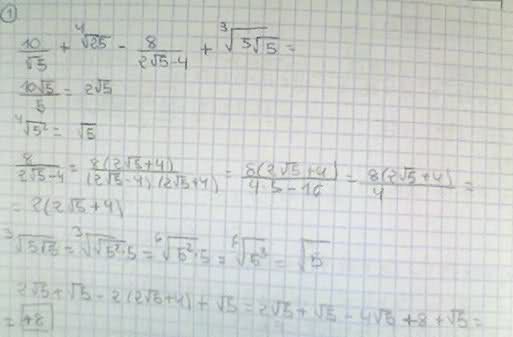 ①
10/√5 + ⁴√25 - 8/(2√5-4) + ³√(5√5) =
10√5/5 = 2√5
⁴√5² = √5
8/(2√5-4) = 8(2√5+4)/((2√5-4)(2√5+4)) = 8(2√5+4)/(4·5-16) = 8(2√5+4)/4 =
= 2(2√5+4)
³√(5√5) = ³√(√(5²·5)) = ⁶√(5²·5) = ⁶√5³ = √5
2√5+√5-2(2√5+4)+√5 = 2√5+√5-4√5+8+√5 =
= +8